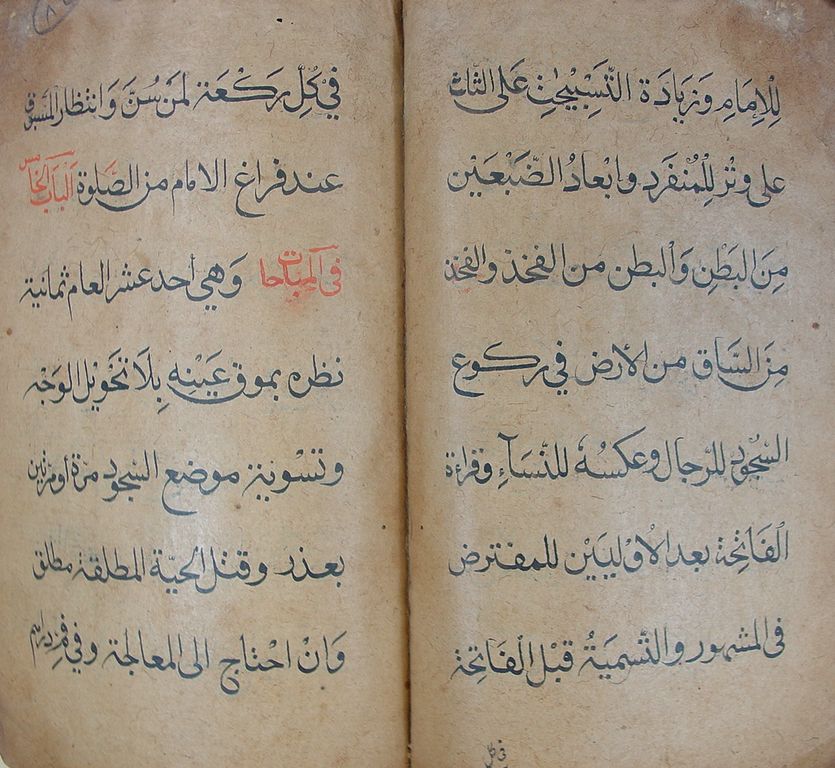 لِلْاِمَامِ وَزِيَادَة التَّسْبِيحَاتِ عَلَى الثَّلٰث
على وتْرٍ لِلْمُنْفَرِد وابْعَادُ الضَّبْعَيْن
مِنَ البَطْنِ وَالْبطن من الفخذ والفخذ
مِنَ السَّاق من الأرْض في ركوع
السّجُودِ للرّجال وعَكسُهُ للنِّسَآءِ وقراءة
الْفَاتِحَة بعد الاوْليَيْن للمفترض
فى المشهور والتَّسميَةُ قَبْل الْفَاتِحَة
فى كل
في كُلّ رَكْعَة لمَن سُنَّ وَانتظار المَسبُوق
عند فراغ الامام من الصَّلوة الباب الخامس
فى المباحات وَهي أحد عشر العام ثمانية
نظره بموق عَيْنِه بِلَا تَحْوِيْل الوَجْه
وتسْوية موضع السّجود مرّة أومرّتين
بعذر وقتل الحيّة المطلقة مطلق
وَانْ احْتاج الى المعالجة وفي فمه دراهم